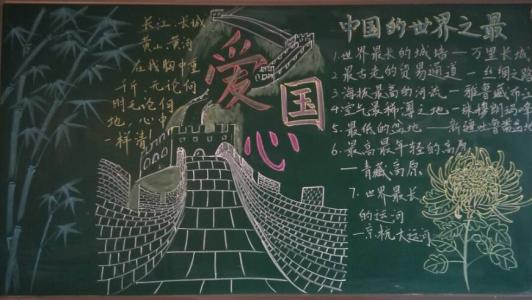 长江.长城
黄山.黄河
在我胸中重
千斤.无论何
时无论何
地.心中
一样
爱
国
心
中国的世界之最
1.世界最长的城墙—万里长城
2.最古老的贸易通道—丝绸之
3.海拔最高的河流—雅鲁藏布江
4.空气最稀薄之地—珠穆朗玛
5.最低的盆地—新疆吐鲁番盆
6.最高最年轻的高原
—青藏高原
7.世界最长
的运河
—京杭大运河